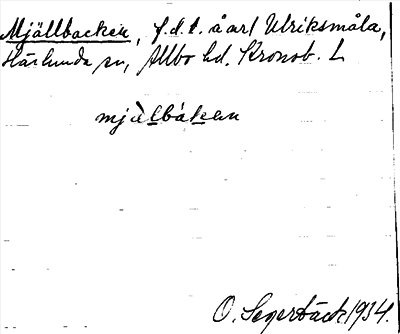 Mjällbacken, f.d.t. å arl Ulriksmåla,
Härlunda sn, Allbo hd. Kronob. L
mjàlbákan
O. Segerbäck 1934.